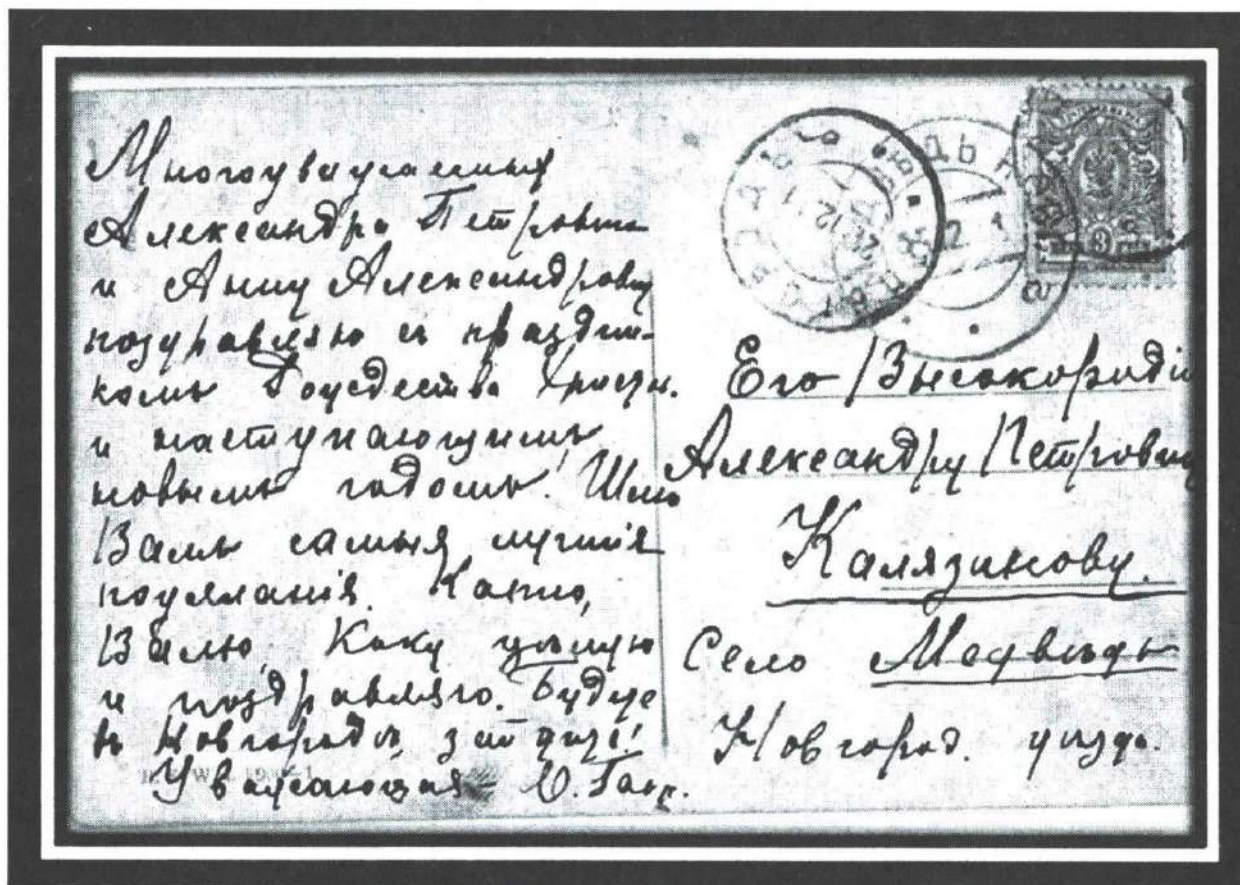 Многоуважаемыхъ
Александра Петровича
и Анну Александровну
поздравляю съ праздни-
комъ Рождества Христ.
и наступающимъ
новымъ годомъ! Шлю
Вамъ самыя лучшія
пожеланія. Катю,
Валю, Коку цѣлую
и поздравляю. Буду
въ Новгородѣ, зайду!
Уважающая - О.
Его Высокородію
Александру Петровичу
Калязикову.
Село Медвѣдь
Новгород. уѣзда.
МЕДВѢДЬ
3